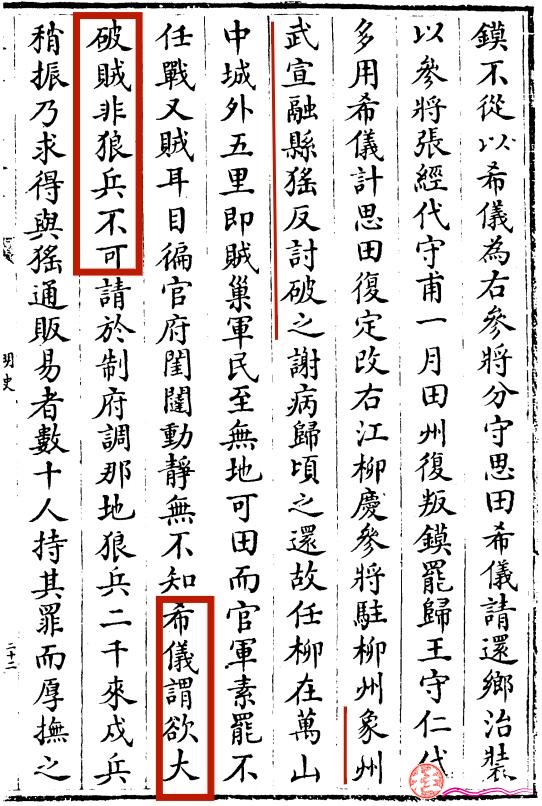 鏌不從以希儀為右參將分守思田希儀請還鄉治裝
以參將張經代守甫一月田州復叛鏌罷歸王守仁代
多用希儀計思田復定改右江柳慶參將駐柳州象州
武宣融縣猺反討破之謝病歸頃之還故任柳在萬山
中城外五里即賊巢軍民至無地可田而官軍素罷不
任戰又賊耳目徧官府閨闥動靜無不知希儀謂欲大
破賊非狼兵不可請於制府調那地狼兵二千來戍兵
稍振乃求得與猺通販易者數十人持其罪而厚撫之
明史
二十二